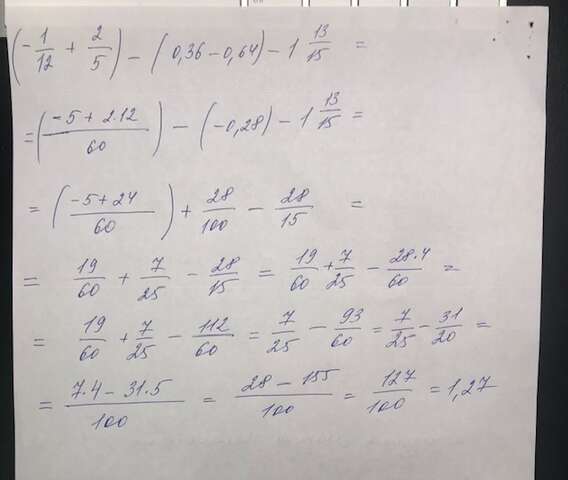 (-1/12 + 2/5) - (0,36 - 0,64) - 1 13/15 =
= ((-5 + 2·12)/60) - (-0,28) - 1 13/15 =
= ((-5 + 24)/60) + 28/100 - 28/15 =
= 19/60 + 7/25 - 28/15 = 19/60 + 7/25 - 28·4/60 =
= 19/60 + 7/25 - 112/60 = 7/25 - 93/60 = 7/25 - 31/20 =
= (7·4 - 31·5)/100 = (28 - 155)/100 = 127/100 = 1,27